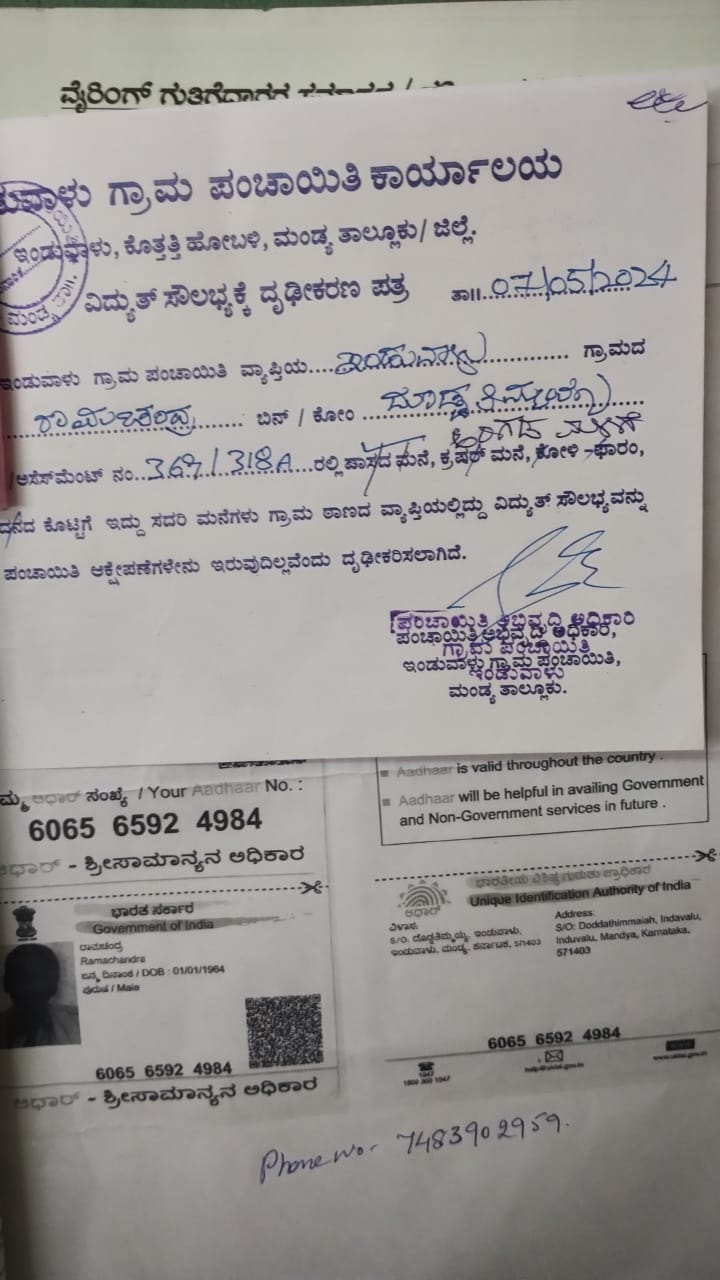 ವೈರಿಂಗ್ ಗುತ್ತಿಗೆದಾರರ
ಗ್ರಾಮ ಪಂಚಾಯಿತಿ ಕಾರ್ಯಾಲಯ
ಇಂಡುವಾಳು, ಕೊತ್ತತ್ತಿ ಹೋಬಳಿ, ಮಂಡ್ಯ ತಾಲ್ಲೂಕು/ ಜಿಲ್ಲೆ.
ವಿದ್ಯುತ್ ಸೌಲಭ್ಯಕ್ಕೆ ದೃಢೀಕರಣ ಪತ್ರ ತಾ॥..07/05/2024
ಇಂಡುವಾಳು ಗ್ರಾಮ ಪಂಚಾಯಿತಿ ವ್ಯಾಪ್ತಿಯ....ಇಂಡುವಾಳು............ ಗ್ರಾಮದ
ರಾಮಚಂದ್ರ ........ ಬಿನ್ / ಕೋಂ ದೊಡ್ಡತಿಮ್ಮಯ್ಯ
/ಅಸೆಸ್‌ಮೆಂಟ್ ನಂ...367/318A...ರಲ್ಲಿ ವಾಸದ ಮನೆ, ಕ್ರಷರ್ ಮನೆ, ಕೋಳಿ ಫಾರಂ,
ದನದ ಕೊಟ್ಟಿಗೆ ಇದ್ದು ಸದರಿ ಮನೆಗಳು ಗ್ರಾಮ ಠಾಣದ ವ್ಯಾಪ್ತಿಯಲ್ಲಿದ್ದು ವಿದ್ಯುತ್ ಸೌಲಭ್ಯವನ್ನು
ಪಂಚಾಯಿತಿ ಆಕ್ಷೇಪಣೆಗಳೇನು ಇರುವುದಿಲ್ಲವೆಂದು ದೃಢೀಕರಿಸಲಾಗಿದೆ.
ಪಂಚಾಯಿತಿ ಅಭಿವೃದ್ಧಿ ಅಧಿಕಾರಿ
ಪಂಚಾಯಿತಿ ಅಭಿವೃದ್ಧಿ ಅಧಿಕಾರಿ,
ಗ್ರಾಮ ಪಂಚಾಯಿತಿ
ಇಂಡುವಾಳು ಗ್ರಾಮ ಪಂಚಾಯಿತಿ,
ಇಂಡುವಾಳು
ಮಂಡ್ಯ ತಾಲ್ಲೂಕು.
ಆಧಾರ್ ಸಂಖ್ಯೆ / Your Aadhaar No. :
6065 6592 4984
ಆಧಾರ್ - ಶ್ರೀಸಾಮಾನ್ಯನ ಅಧಿಕಾರ
Aadhaar is valid throughout the country .
Aadhaar will be helpful in availing Government
and Non-Government services in future .
ಭಾರತ ಸರ್ಕಾರ
Government of India
ರಾಮಚಂದ್ರ
Ramachandra
ಜನ್ಮ ದಿನಾಂಕ / DOB : 01/01/1964
ಪುರುಷ / Male
6065 6592 4984
ಆಧಾರ್ - ಶ್ರೀಸಾಮಾನ್ಯನ ಅಧಿಕಾರ
ಭಾರತೀಯ ವಿಶಿಷ್ಟ ಗುರುತು ಪ್ರಾಧಿಕಾರ
Unique Identification Authority of India
ಆಧಾರ್
ವಿಳಾಸ:
S/O, ದೊಡ್ಡತಿಮ್ಮಯ್ಯ, ಇಂಡುವಾಳು,
ಇಂಡುವಾಳು, ಮಂಡ್ಯ, ಕರ್ನಾಟಕ, 571403
Address:
S/O: Doddathimmaiah, Indavalu,
Induvalu, Mandya, Karnataka,
571403
6065 6592 4984
1947
1800 300 1947
help@uidai.gov.in
www.uidai.gov.in
Phone no- 7483902959.